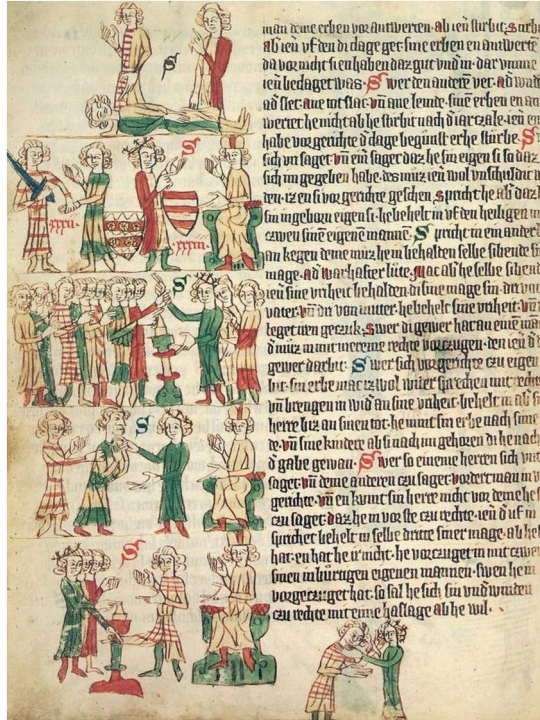 man deme erben vor antwerten· ab ien stirbit· Swelch
ab ien vf den di dage get· sine erben en antwerte
da vor nicht si en haben daz gut vnd in· dar vmme
ien bedaget was· Swer den andern ver· ad wund
ad slet· ane totslac· vnd ane lemde· sine erben en an
wertet he nicht ab he stirbit nach d iarzale· ien en
habe vor gerichte d dage begunst er he sturbe· S
sich vnd saget· vnd ein saget daz he sin eigen si so daz
sich im gegeben habe· des muz ien wol vnschuldic
den· iz en si vor gerichte geschen, spricht he abe daz
sin ingeborn eigen si· he behelt in vf den heiligen
czwen sine eigene manne· Spricht in ein ander
an kegen deme muz he in behalden selbe sibende
mage· ad warhafter lute· Mac ab he selbe sibende
ien sine vriheit behalden di sine mage sin· dri von
vater· vnd dri von muter· he behelt sine vriheit· vnd
leget ien geczuk· Swer di gewer hat an eime man
d muz in mit mererme rechte vorzugen· den ien d
gewer darbit· Swer sich vor gerichte czu eigen
bit· sin erbe mac iz wol wider sprechen mit rechte
vnd brengen in wid an sine vriheit· behelt in ab si
herre biz an sinen tot· he nimt sin erbe nach sime
de· vnd sine kindere ab si nach im gehoren di he nach
d gabe gewan· Swer so eineme herren sich vnd
saget· vnd deme anderen czu saget· vordert man in vor
gerichte· vnd en kumt sin herre nicht vor deme he
czu saget· daz he in vor ste czu rechte· ien d uf in
sprichet behelt in selbe dritte siner mage· ab he
hat· en hat he ir nicht· he vorczuget in mit czwen
sinen inburtigen eigenen mannen· swen he in
vorgeczuget hat· so sal he sich sin vnd winden
czu rechte mit eime halslage ab he wil·
S
S
·xxxii·
·xxxiii·
S
S
S